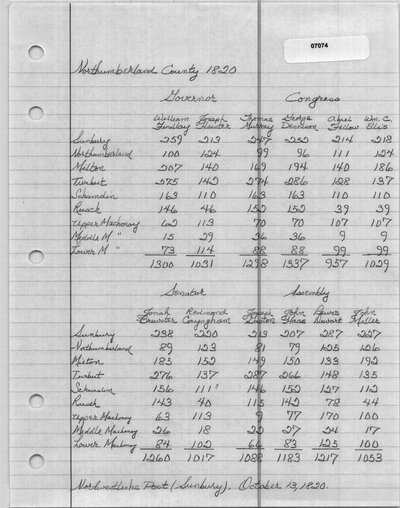 07074
Northumberland County 1820
Governor Congress
William Findlay Joseph Hiester Thomas Murray George Denison Abiel Fellows Wm. C. Ellis
Sunbury 259 213 247 252 214 218
Northumberland 100 124 99 96 111 124
Milton 207 140 169 194 140 186
Turbut 275 142 274 286 128 137
Schamokin 163 110 163 163 110 110
Rusch 146 46 152 152 39 39
Upper Machonoy 62 113 70 70 107 107
Middle M " 15 29 36 36 9 9
Lower M " 73 114 88 88 99 99
1300 1031 1298 1337 957 1029
Senator Assembly
Jonah Brewster Redmond Conyngham Joseph John Haas Lewis Dewart John Miller
Sunbury 238 220 213 207 287 227
Northumberland 89 123 81 79 125 126
Milton 185 152 149 150 133 192
Turbut 276 137 287 266 148 135
Schamokin 156 111? 146 152 127 112
Rusch 143 40 115 142 78 44
Upper Machonoy 63 113 9 77 170 100
Middle Machonoy 26 18 22 27 24 17
Lower Machonoy 84 102 66 83 125 100
1260 1017 1088 1183 1217 1053
Nordwestliche Post (Sunbury). October 13, 1820.